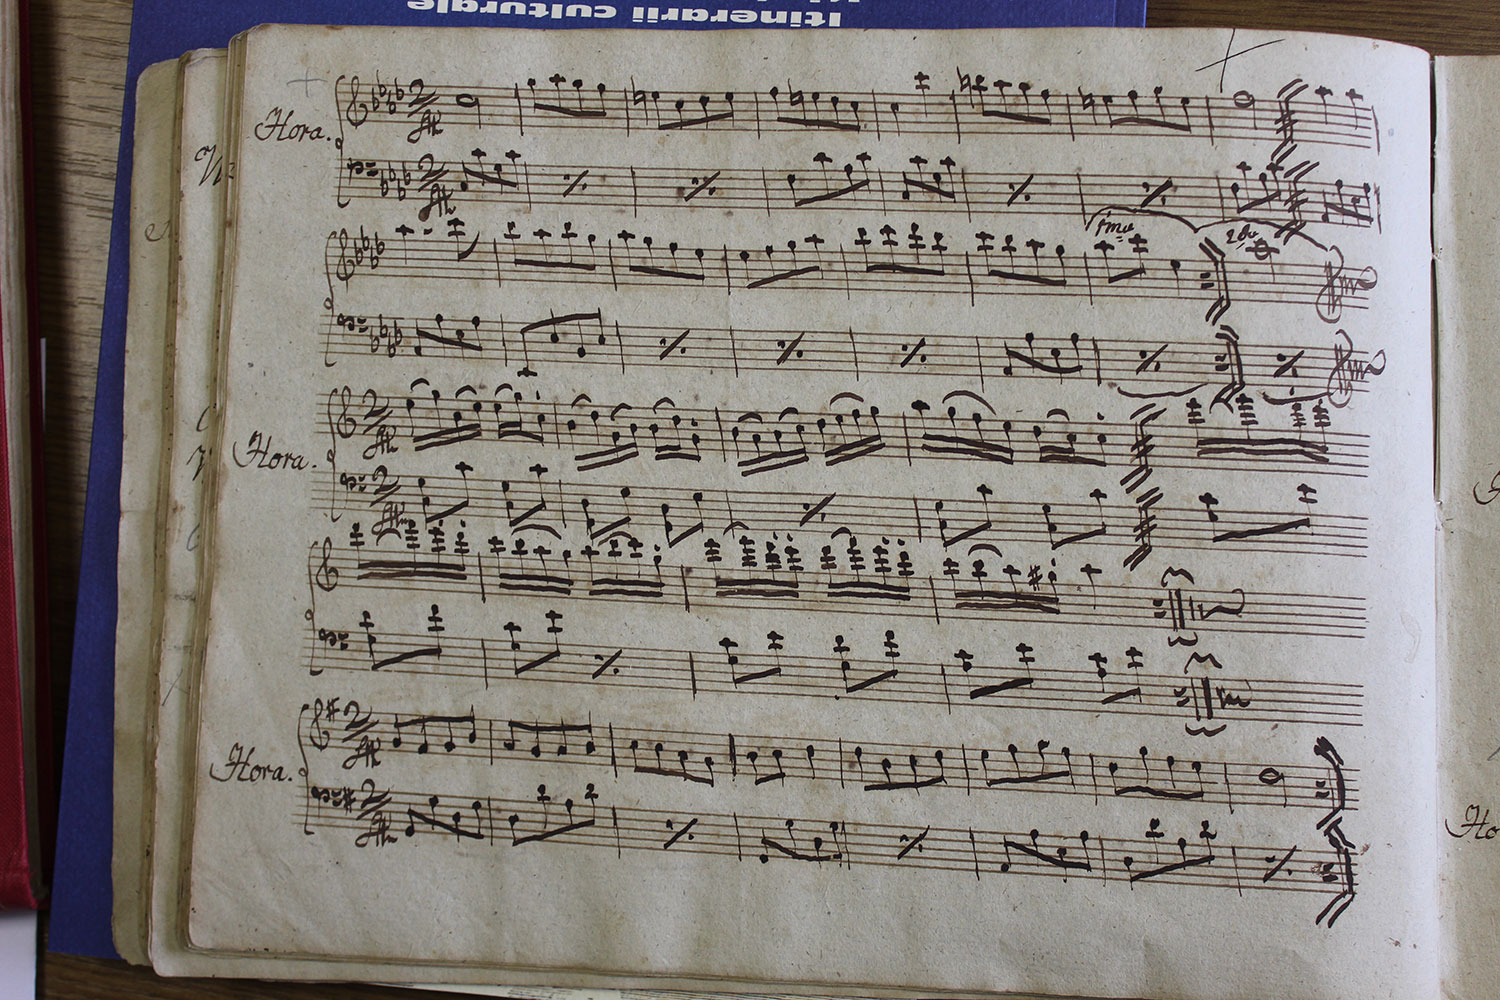 Itinerarii culturale
Hora.
1ma
2da
Hora.
Hora.
Ho